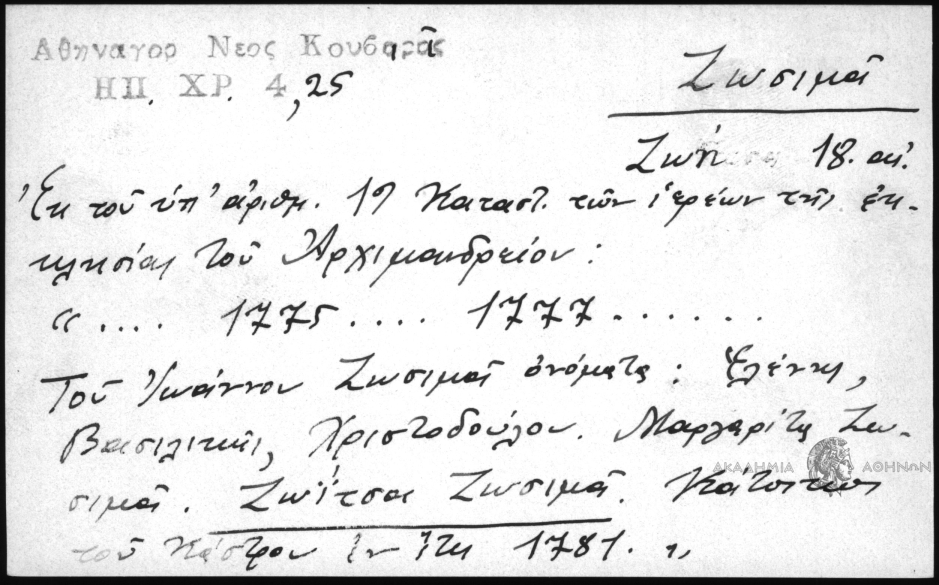 Αθηναγορ Νεος Κουβαρᾶς
ΗΠ. ΧΡ. 4,25
Ζωσιμᾶ
Ζωή 18. αἰ.
Ἐκ τοῦ ὑπ' ἀριθμ. 19 Καταστ. τῶν ἱερέων τῆς ἐκ-
κλησίας τοῦ Ἀρχιμανδρείου:
« .... 1775 .... 1777 .......
Τοῦ Ἰωάννου Ζωσιμᾶ ὀνόματα: Ἑλένης,
Βασιλικῆς, Χριστοδούλου. Μαργαρίτα Ζω-
σιμᾶ. Ζωΐτσα Ζωσιμᾶ.
ΑΚΑΔΗΜΙΑ ΑΘΗΝΩΝ
τοῦ Κάστρου ἐν ἔτει 1781. »